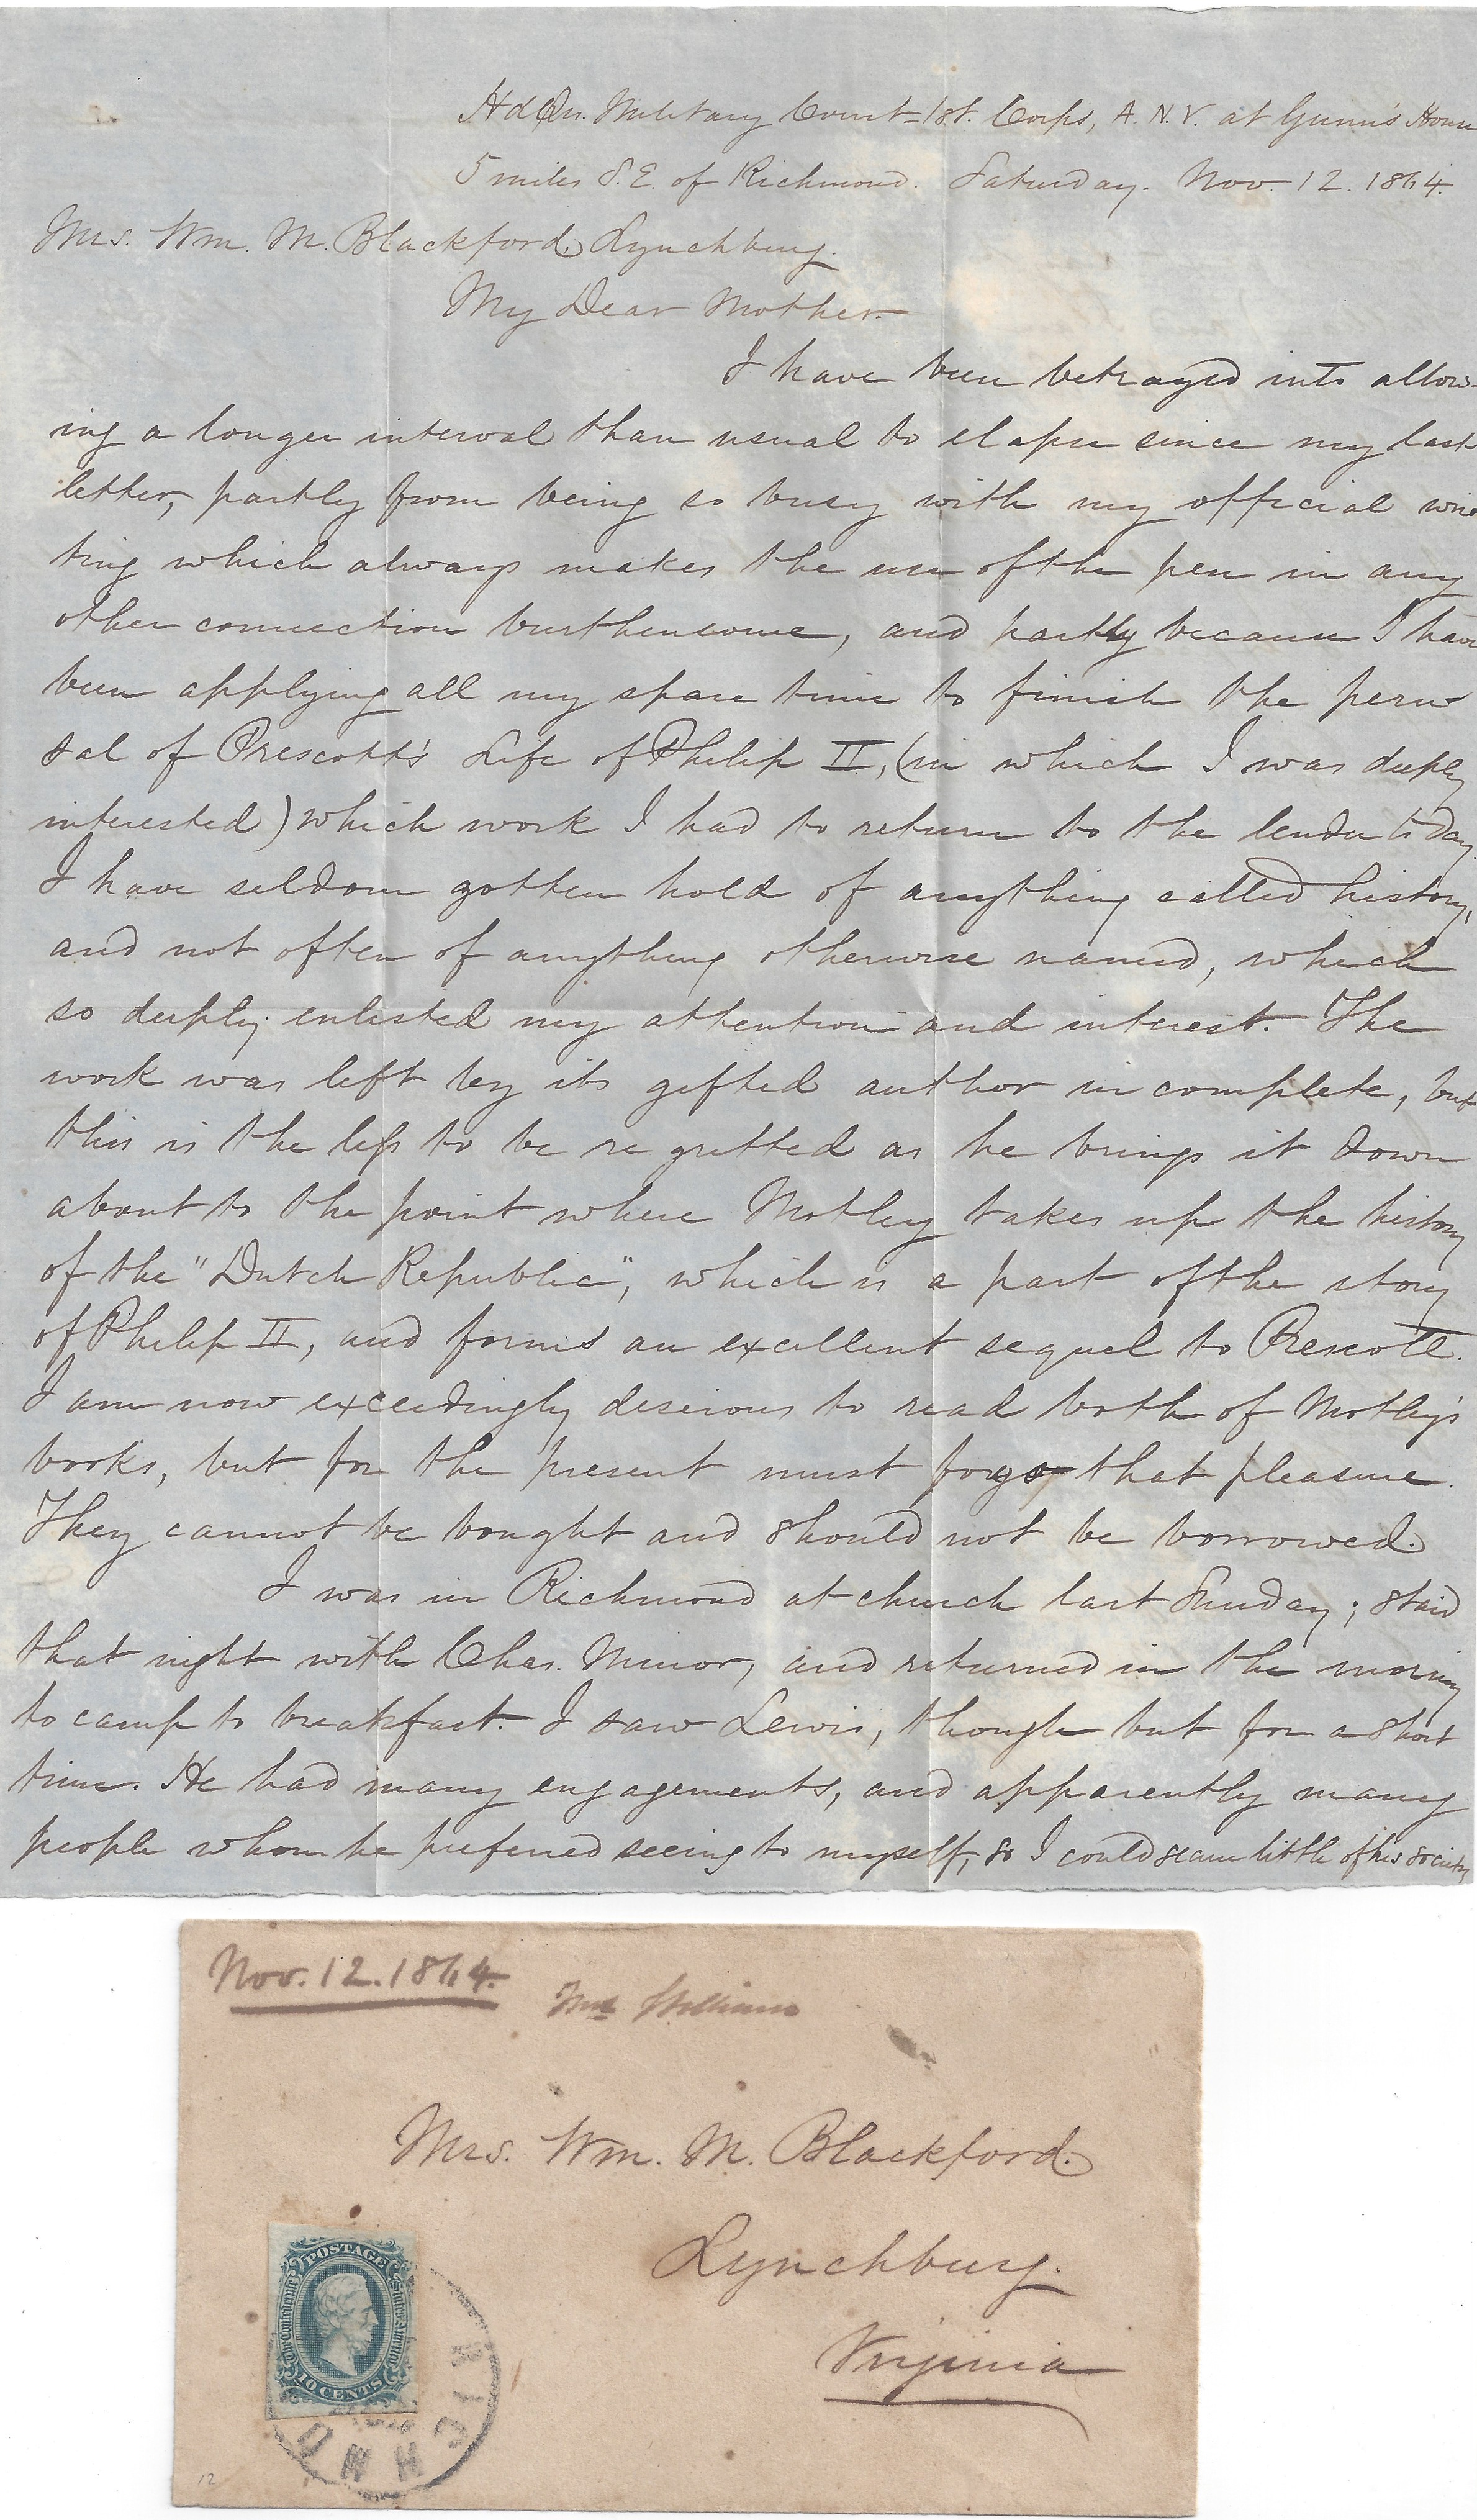 Hd Qrs. Military Court 1st. Corps, A. N. V. at Gunn's House
5 miles S.E. of Richmond. Saturday. Nov. 12. 1864.
Mrs. Wm. M. Blackford, Lynchburg.
My Dear Mother
I have been betrayed into allow-
ing a longer interval than usual to elapse since my last
letter, partly from being so busy with my official wri-
ting which always makes the use of the pen in any
other connection burthensome, and partly because I have
been applying all my spare time to finish the peru-
sal of Prescott's Life of Philip II, (in which I was deeply
interested) which work I had to return to the lender to day.
I have seldom gotten hold of anything called history,
and not often of anything otherwise named, which
so deeply enlisted my attention and interest. The
work was left by its gifted author incomplete, but
this is the less to be regretted as he brings it down
about to the point where Motley takes up the history
of the "Dutch Republic", which is a part of the story
of Philip II, and forms an excellent sequel to Prescott.
I am now exceedingly desirous to read both of Motley's
books, but for the present must forgo that pleasure.
They cannot be bought and should not be borrowed.
I was in Richmond at church last Sunday; staid
that night with Chas. Minor, and returned in the morning
to camp to breakfast. I saw Lewis, though but for a short
time. He had many engagements, and apparently many
people whom he preferred seeing to myself, so I could secure little of his society
Nov. 12. 1864.
Mrs William
Mrs. Wm. M. Blackford.
Lynchburg.
Virginia
POSTAGE
The Confederate States of America
10 CENTS
RICHMOND
12